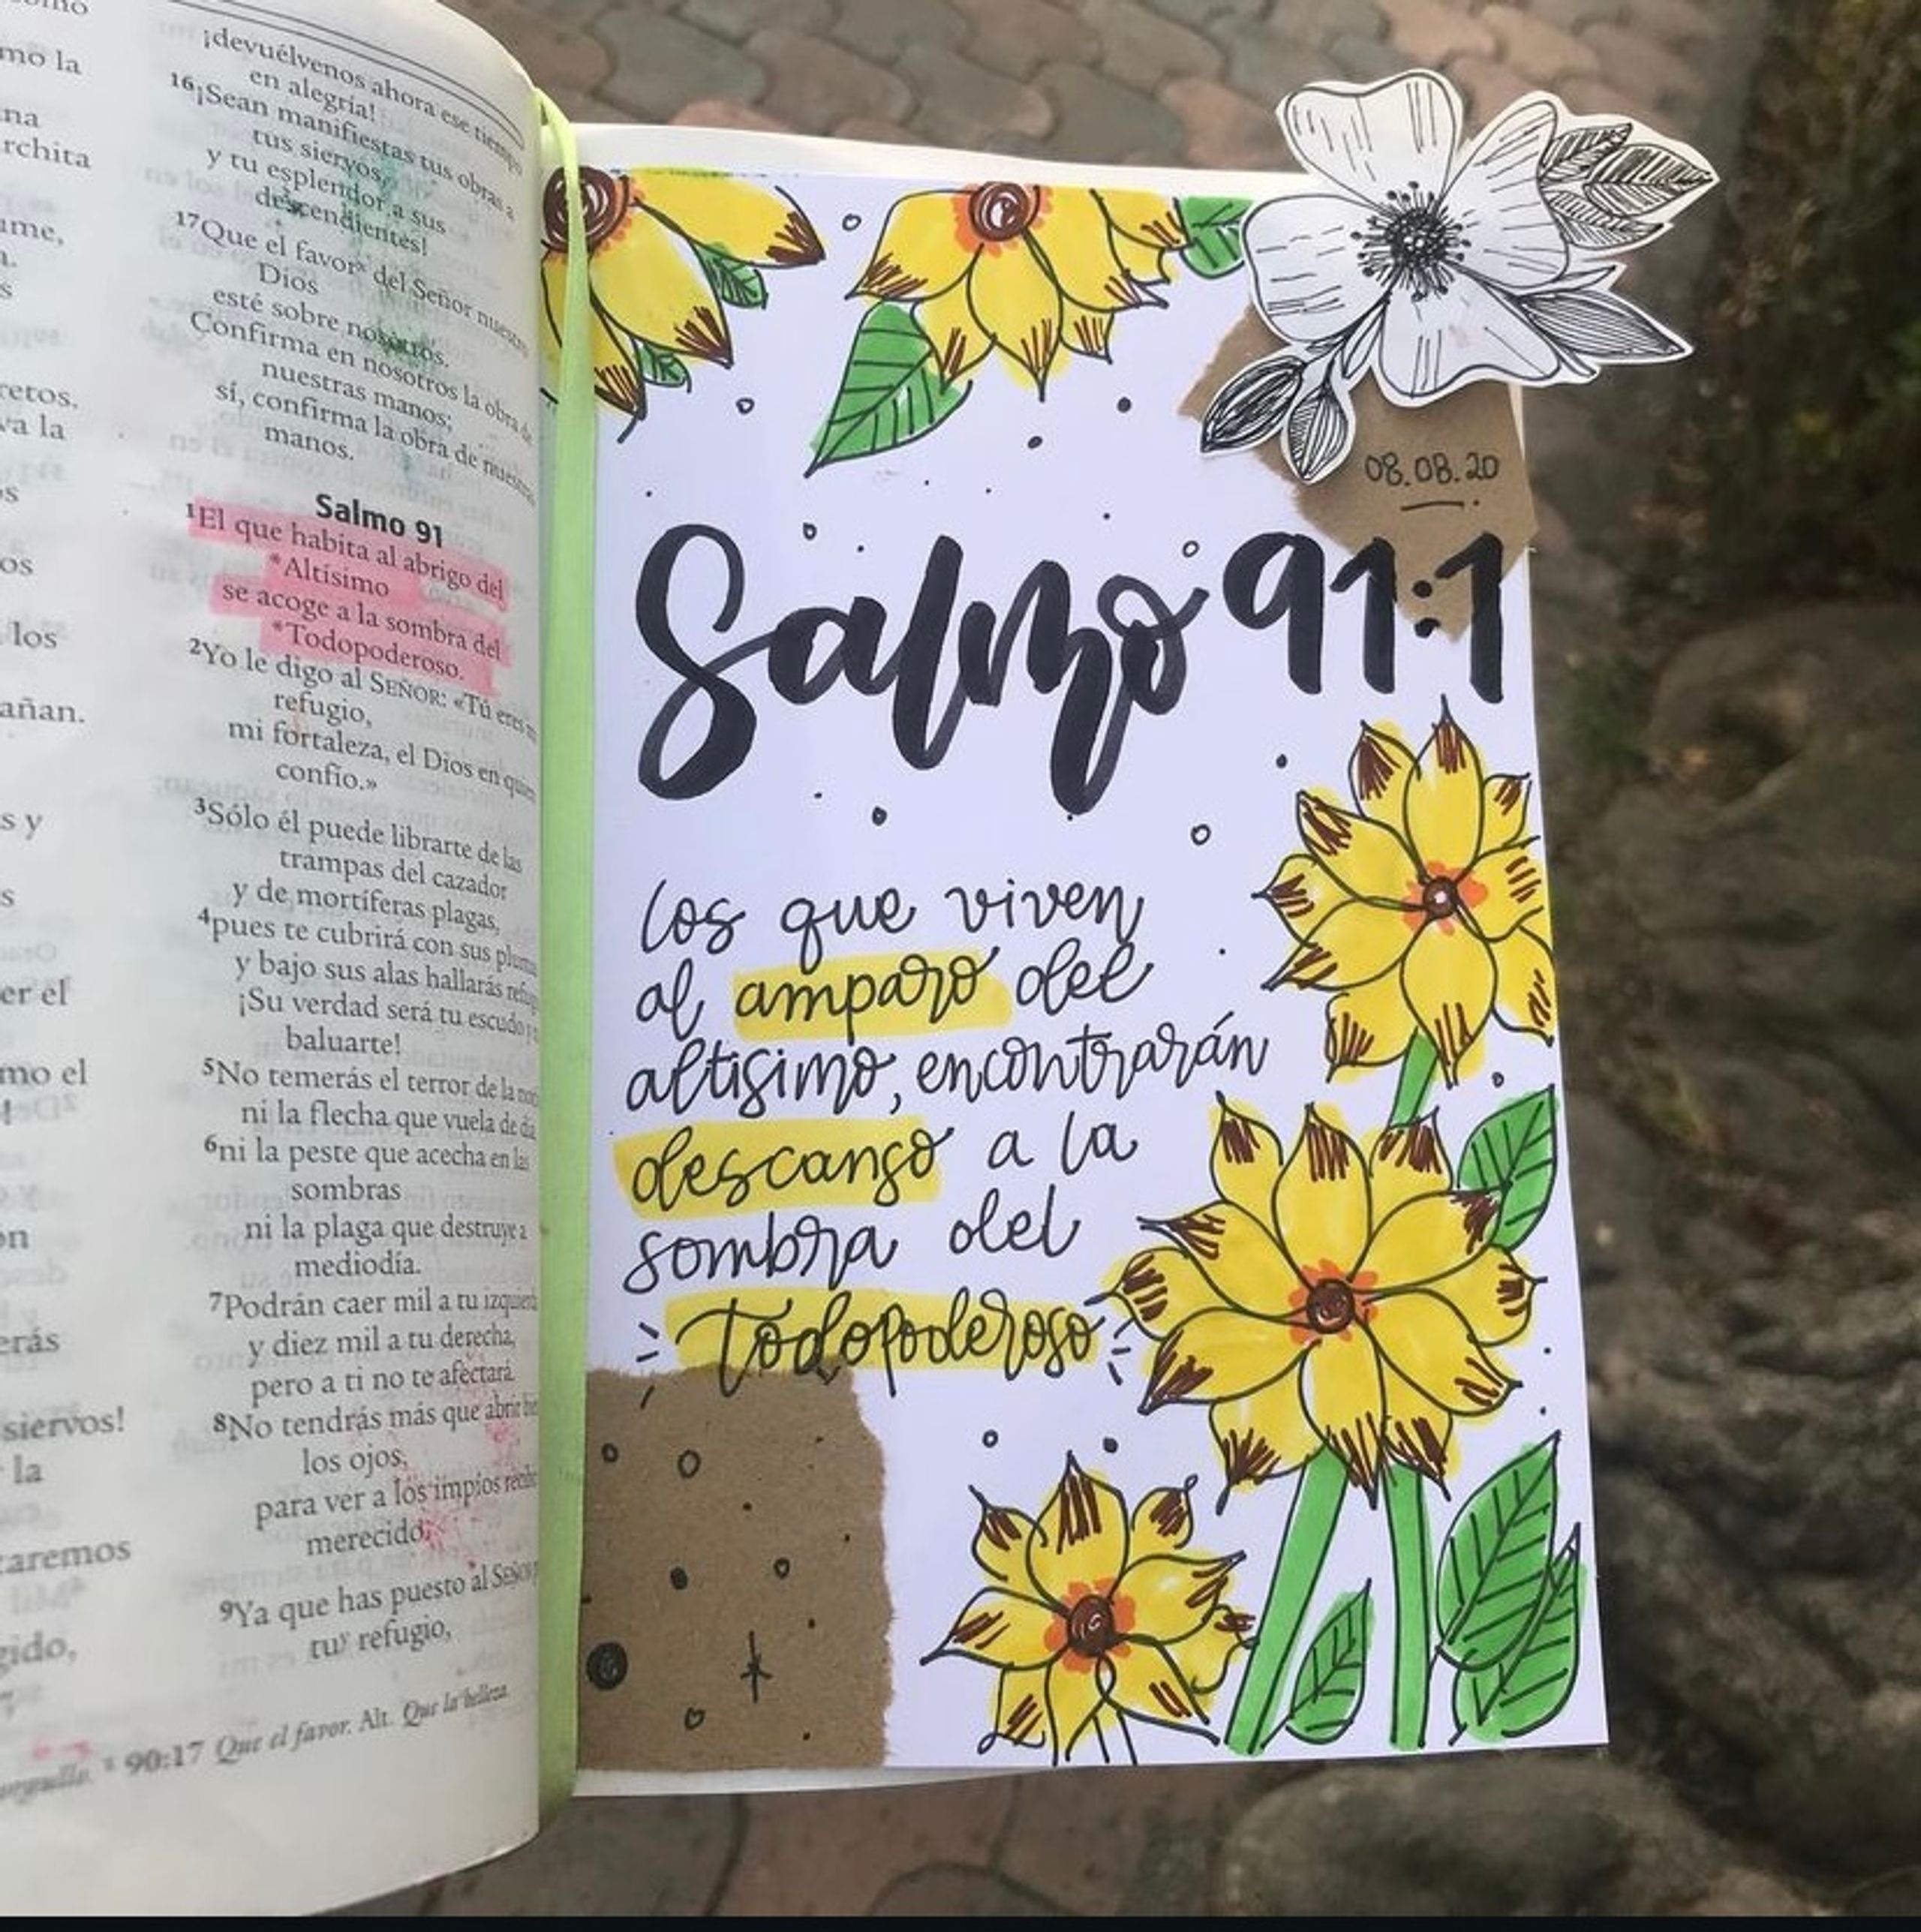 mo la
na
rchita
ume,
retos.
va la
os
los
añan.
s y
s
er el
mo el
erás
siervos!
la
taremos
gido,
¡devuélvenos ahora ese tiempo
en alegría!
16¡Sean manifiestas tus obras a
tus siervos,
y tu esplendor a sus
descendientes!
17Que el favor del Señor nuestro
Dios
esté sobre nosotros.
Confirma en nosotros la obra de
nuestras manos;
sí, confirma la obra de nuestras
manos.
Salmo 91
1El que habita al abrigo del
*Altísimo
se acoge a la sombra del
*Todopoderoso.
2Yo le digo al SEÑOR: «Tú eres
refugio,
mi fortaleza, el Dios en quien
confío.»
3Sólo él puede librarte de las
trampas del cazador
y de mortíferas plagas,
4pues te cubrirá con sus
y bajo sus alas hallarás
¡Su verdad será tu escudo
baluarte!
5No temerás el terror de la
ni la flecha que vuela de día
6ni la peste que acecha en las
sombras
ni la plaga que destruye a
mediodía.
7Podrán caer mil a tu
y diez mil a tu derecha,
pero a ti no te afectará.
8No tendrás más que abrir
los ojos,
para ver a los impíos
merecido.
9Ya que has puesto al SEÑOR
tu refugio,
90:17 Que el favor. Alt. Que la belleza
08.08.20
Salmo 91:1
los que viven
al amparo del
altisimo, encontrarán
descanso a la
sombra del
todopoderoso